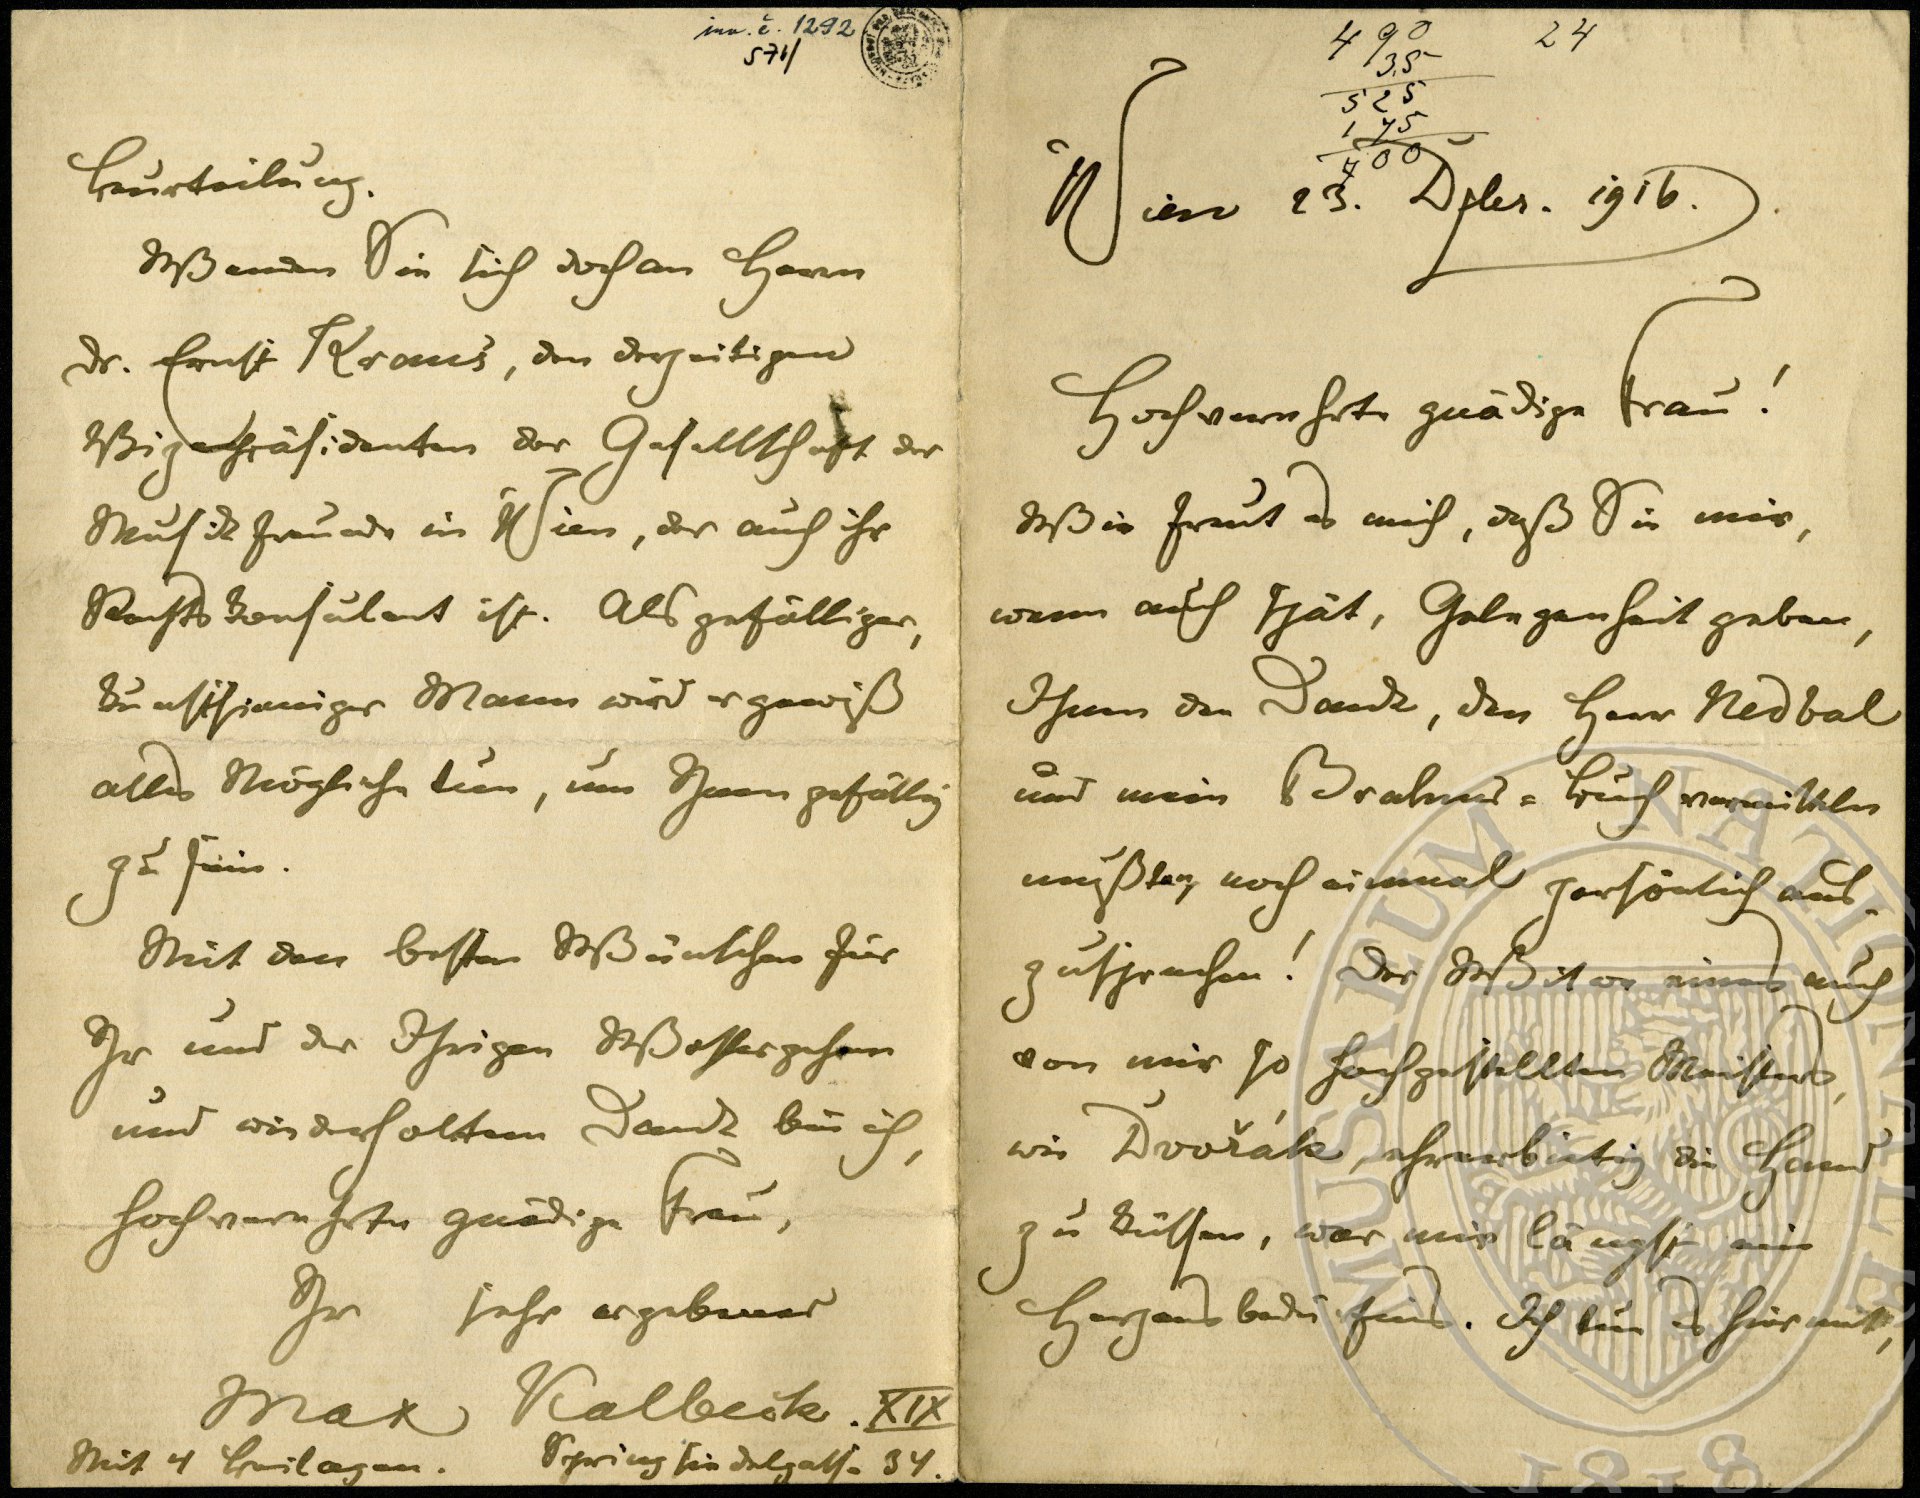 inv. č. 1292
571/
Beurteilung.
Wenden Sie sich doch an Herrn
Dr. Ernst Kraus, den derzeitigen
Vizepräsidenten der Gesellschaft der
Musikfreunde in Wien, der auch ihr
Rechtskonsulent ist. Als gefälliger,
kunstsinniger Mann wird er gewiß
alles Mögliche tun, um Ihnen gefällig
zu sein.
Mit den besten Wünschen für
Ihr und der Ihrigen Wohlergehen
und wiederholtem Dank bin ich,
hochverehrte gnädige Frau,
Ihr sehr ergebener
Max Kalbeck. XIX
Mit 4 Beilagen. Springsiedelgasse 34.
490 24
35
525
175
700
Wien 23. Dzber. 1916.
Hochverehrte gnädige Frau!
Wie freut es mich, daß Sie mir,
wenn auch spät, Gelegenheit geben,
Ihnen den Dank, den Herr Nedbal
und mein Brahms=Buch vermitteln
mußten, noch einmal persönlich aus-
zusprechen! Der Witwe eines auch
von mir so hochgestellten Meisters,
wie Dvořák, ehrerbietig die Hand
zu küssen, war mir längst ein
Herzensbedürfnis. Ich tue es hiermit,
MUSAEUM NATIONALE
1818